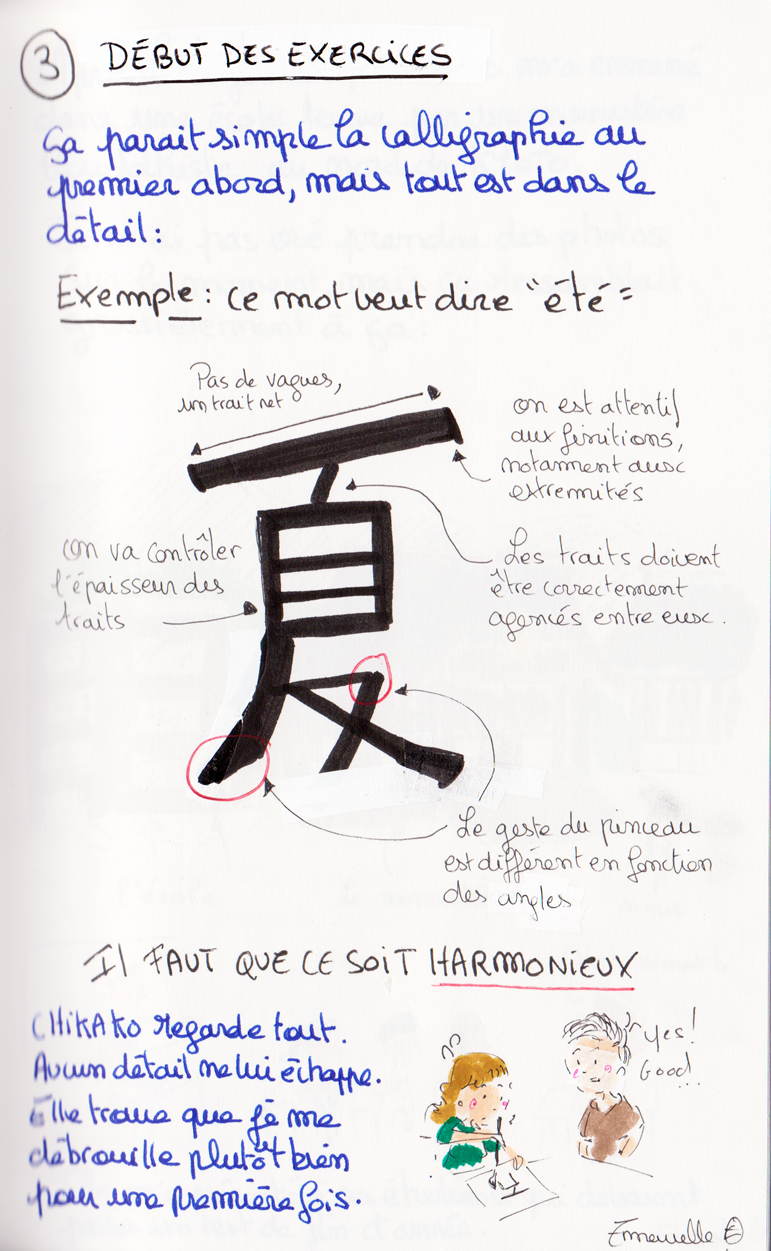 3 DÉBUT DES EXERCICES
Ça parait simple la calligraphie au
premier abord, mais tout est dans le
détail :
Exemple : ce mot veut dire "été"
Pas de vagues,
un trait net
on est attentif
aux finitions,
notamment aux
extremités
on va contrôler
l'épaisseur des
traits
Les traits doivent
être correctement
agencés entre eux.
夏
Le geste du pinceau
est différent en fonction
des angles
Il FAUT QUE CE SOIT HARMONIEUX
CHIKAKO regarde tout.
Aucun détail ne lui échappe.
Elle trouve que je me
débrouille plutôt bien
pour une première fois.
Yes!
Good...
Emmanuelle